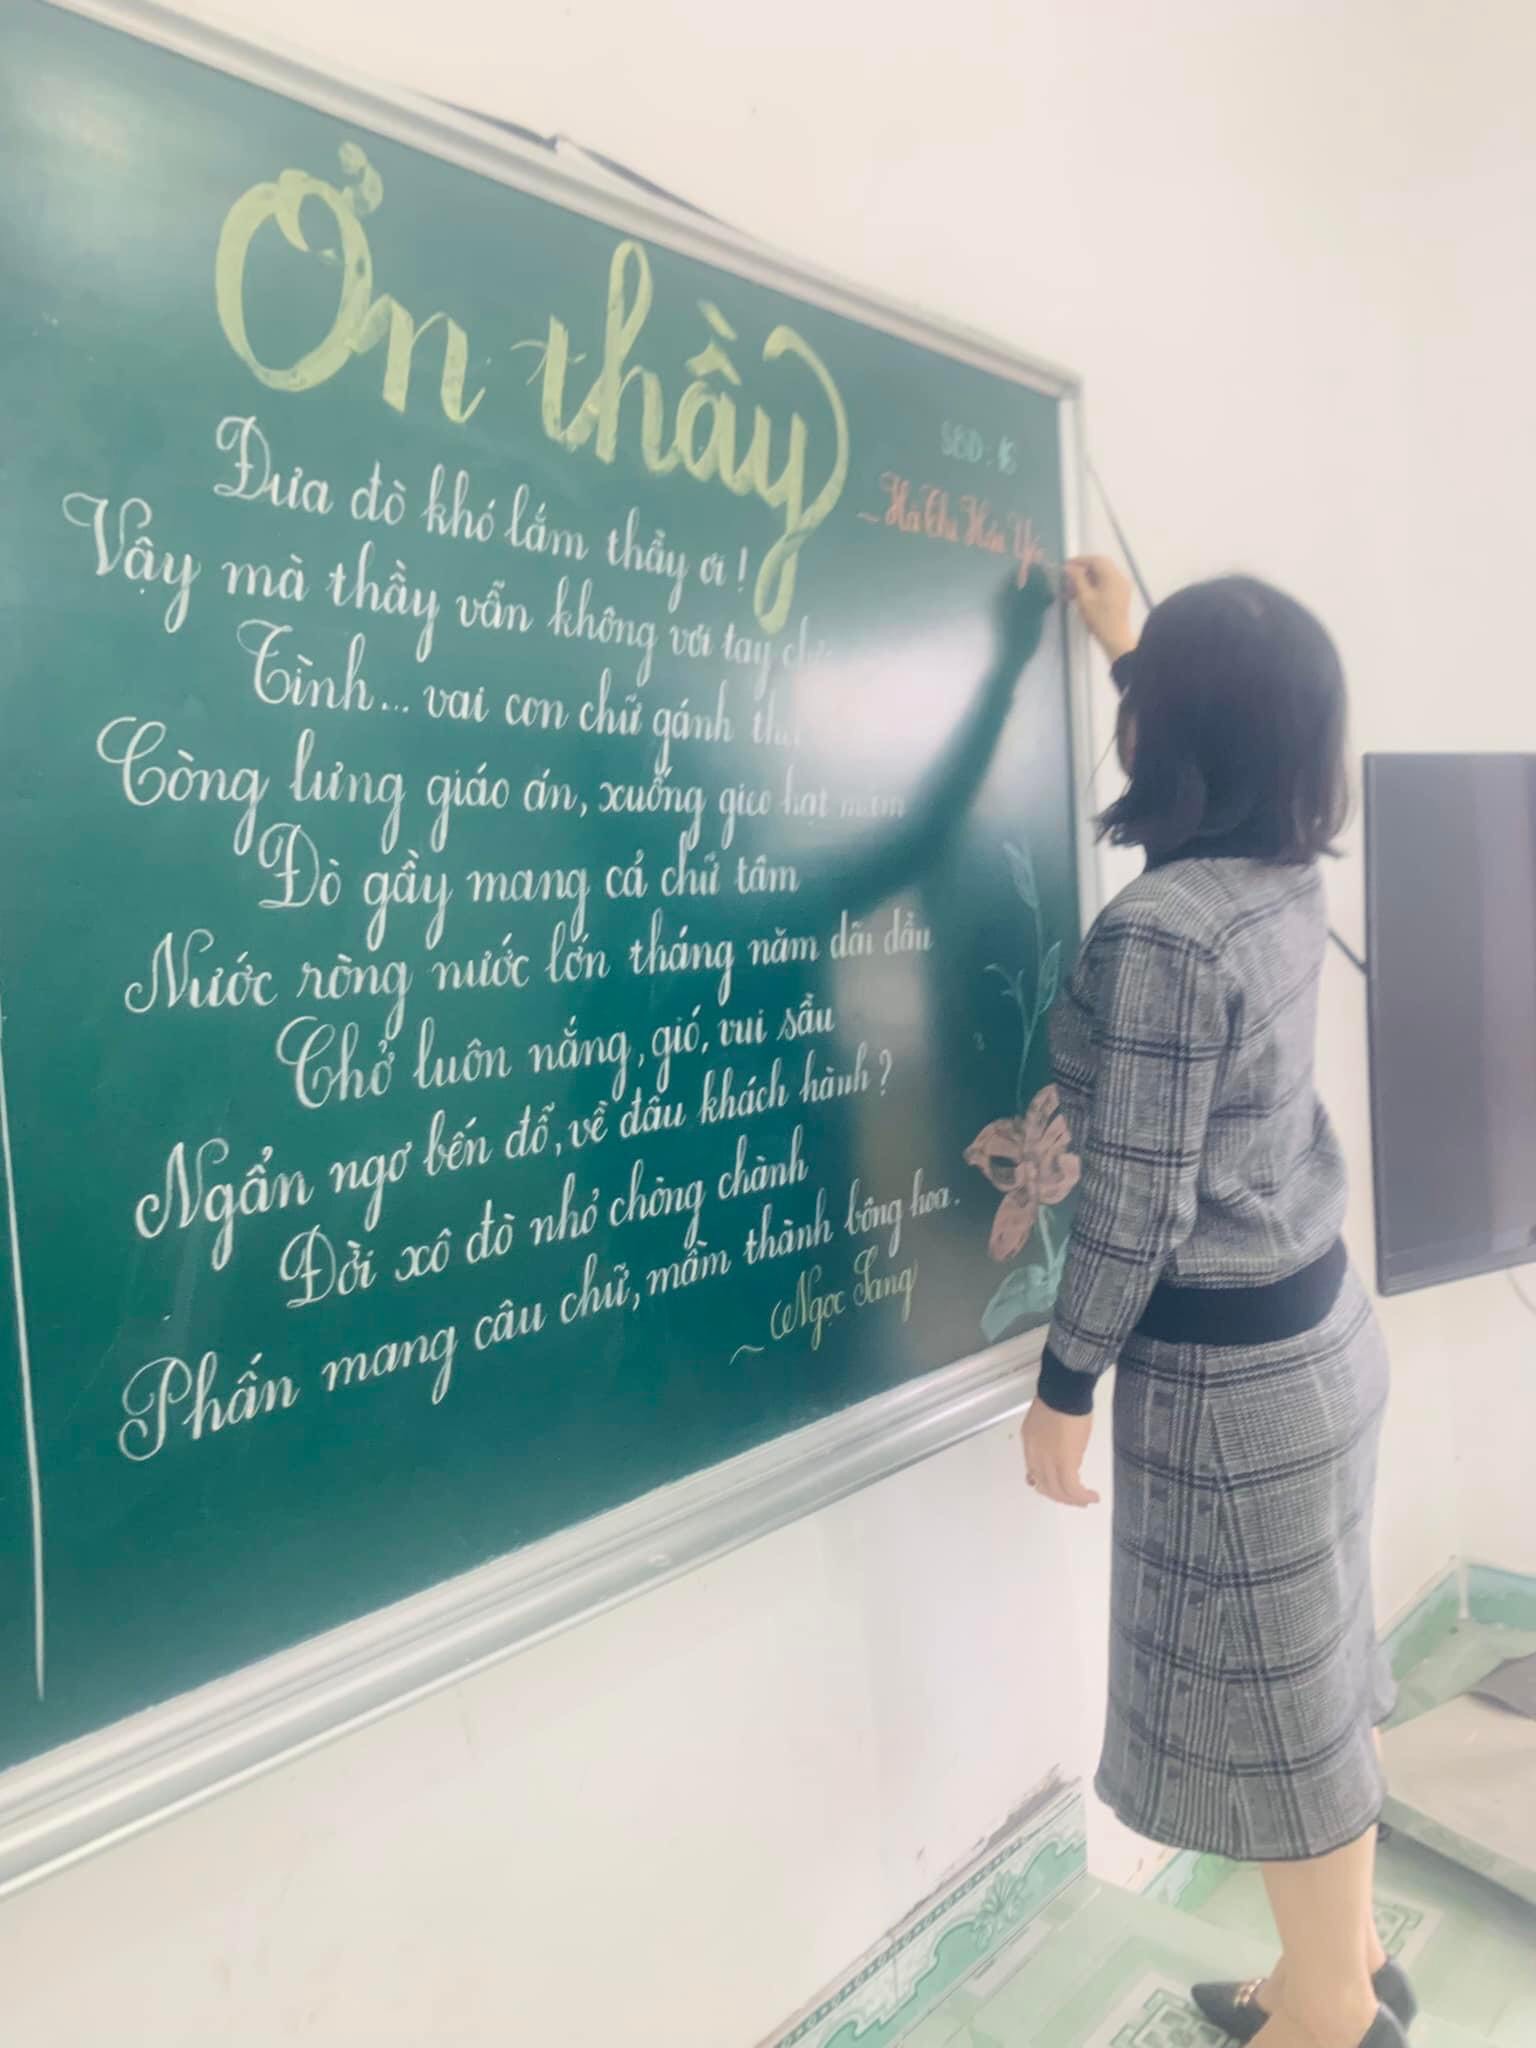 Ơn thầy
SBD: 16
~ Hà Thị Hải Yến
Đưa đò khó lắm thầy ơi!
Vậy mà thầy vẫn không vơi tay chèo
Tình... vai con chữ gánh
Còng lưng giáo án, xuống gieo hạt mầm
Đò gầy mang cả chữ tâm
Nước ròng nước lớn tháng năm dãi dầu
Chở luôn nắng, gió, vui sầu
Ngẩn ngơ bến đỗ, về đâu khách hành?
Đời xô đò nhỏ chòng chành
Phấn mang câu chữ, mầm thành bông hoa.
~ Ngọc Sang